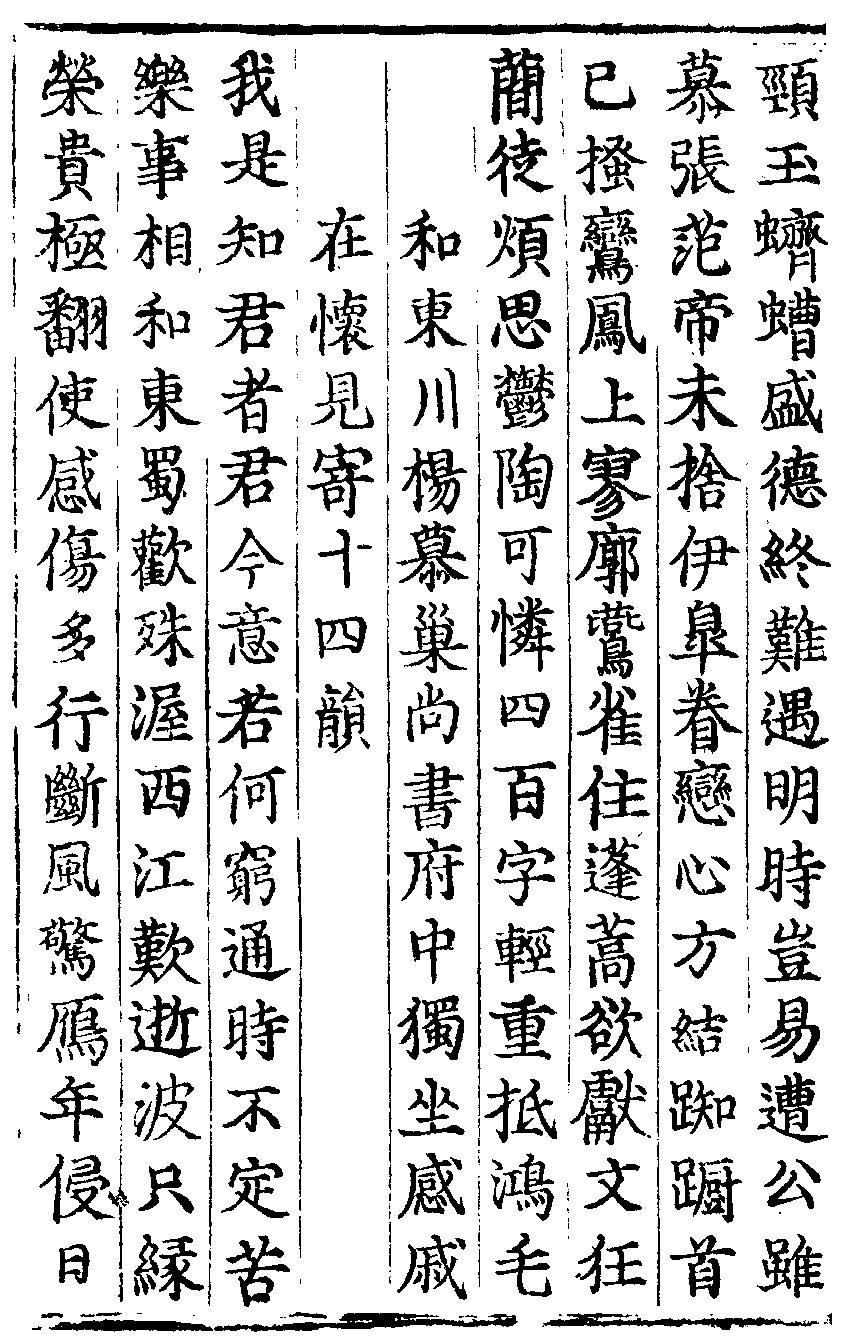 頸玉蠐螬盛德終難遇明時豈易遭公雖
慕張范帝未捨伊臯眷戀心方結踟躕首
已搔鸞鳳上寥廓鷰雀住蓬蒿欲獻文狂
蕳徒煩思鬱陶可憐四百字輕重抵鴻毛
和東川楊慕巢尚書府中獨坐感戚
在懷見寄十四韻
我是知君者君今意若何窮通時不定苦
樂事相和東蜀歡殊渥西江歎逝波只縁
榮貴極翻使感傷多行斷風驚鴈年侵日